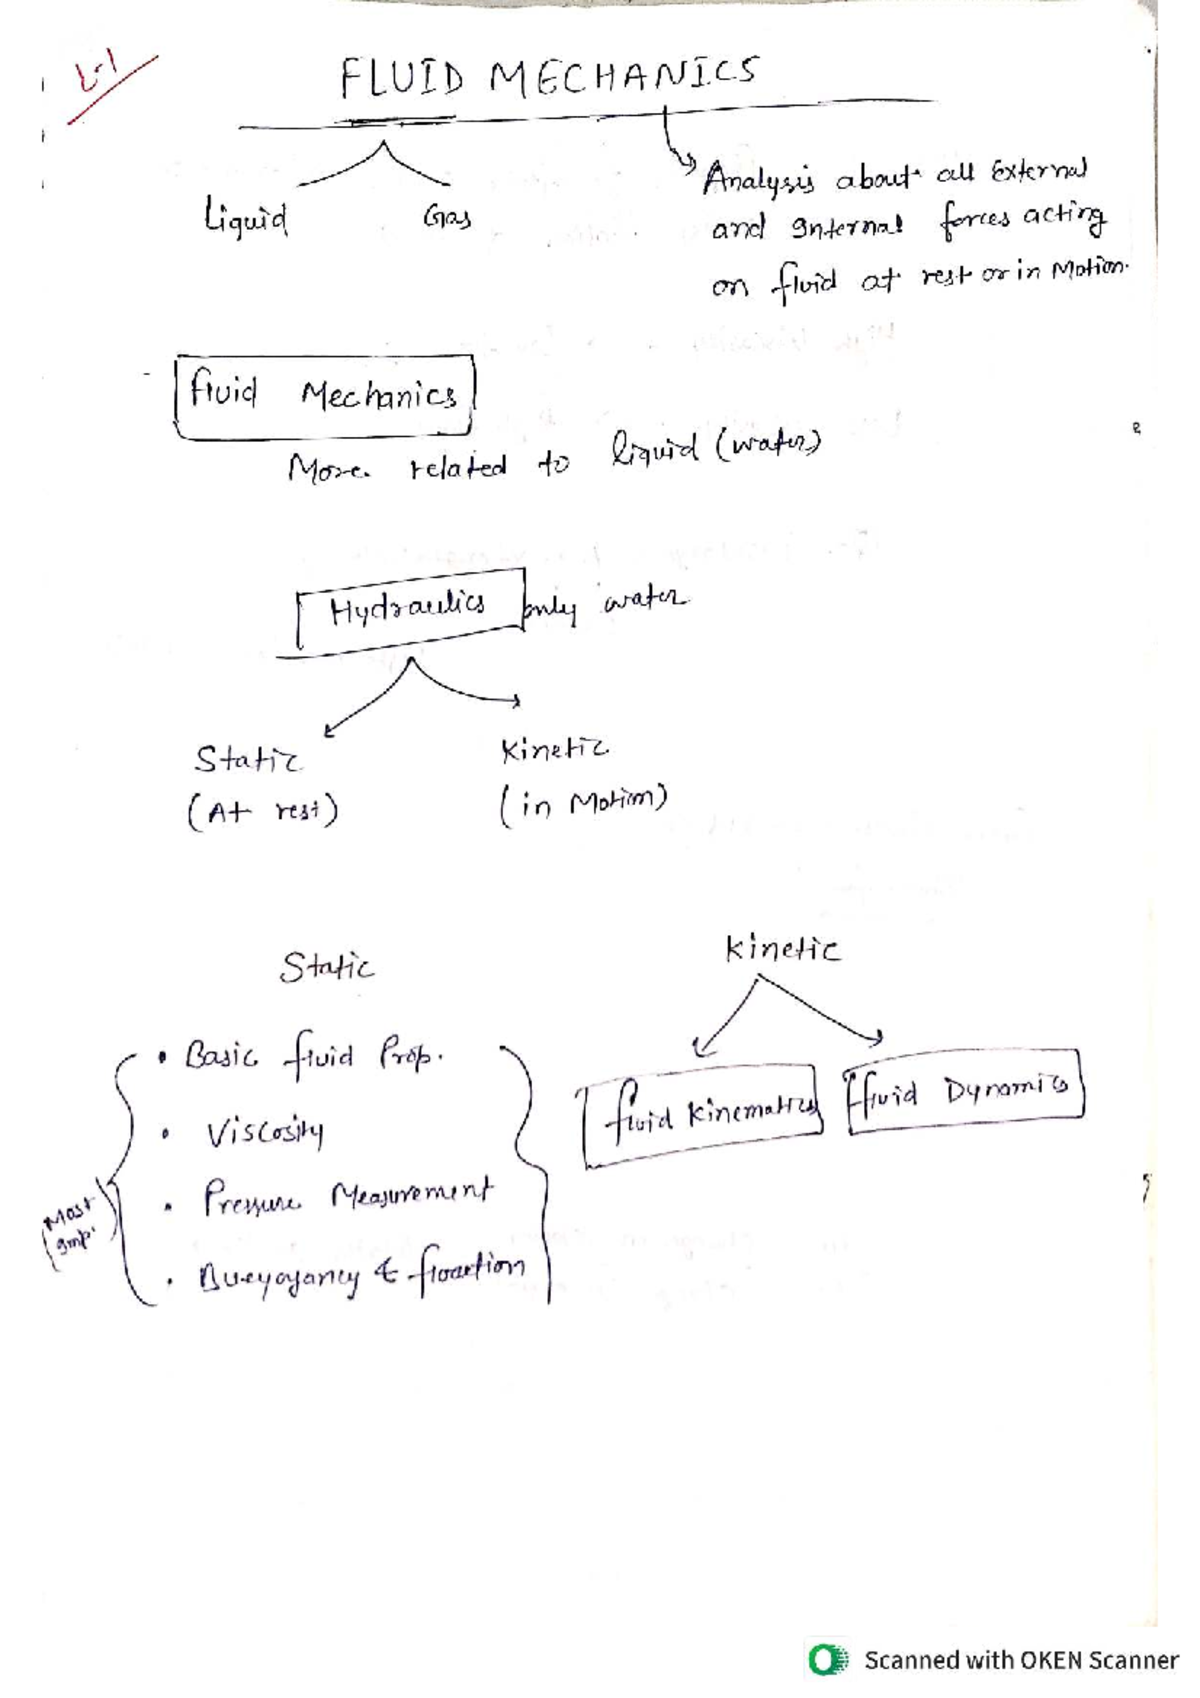 L-1
FLUID MECHANICS
Liquid
Gas
Analysis about all External
and Internal forces acting
on fluid at rest or in Motion.
fluid Mechanics
More related to liquid (water)
Hydraulics only water
Static
Kinetic
(At rest)
(in Motion)
Static
Kinetic
• Basic fluid Prop.
• Viscosity
• Pressure Measurement
• Bueyoyancy & floation
Most
Imp.
fluid Kinematics
fluid Dynamics
Scanned with OKEN Scanner